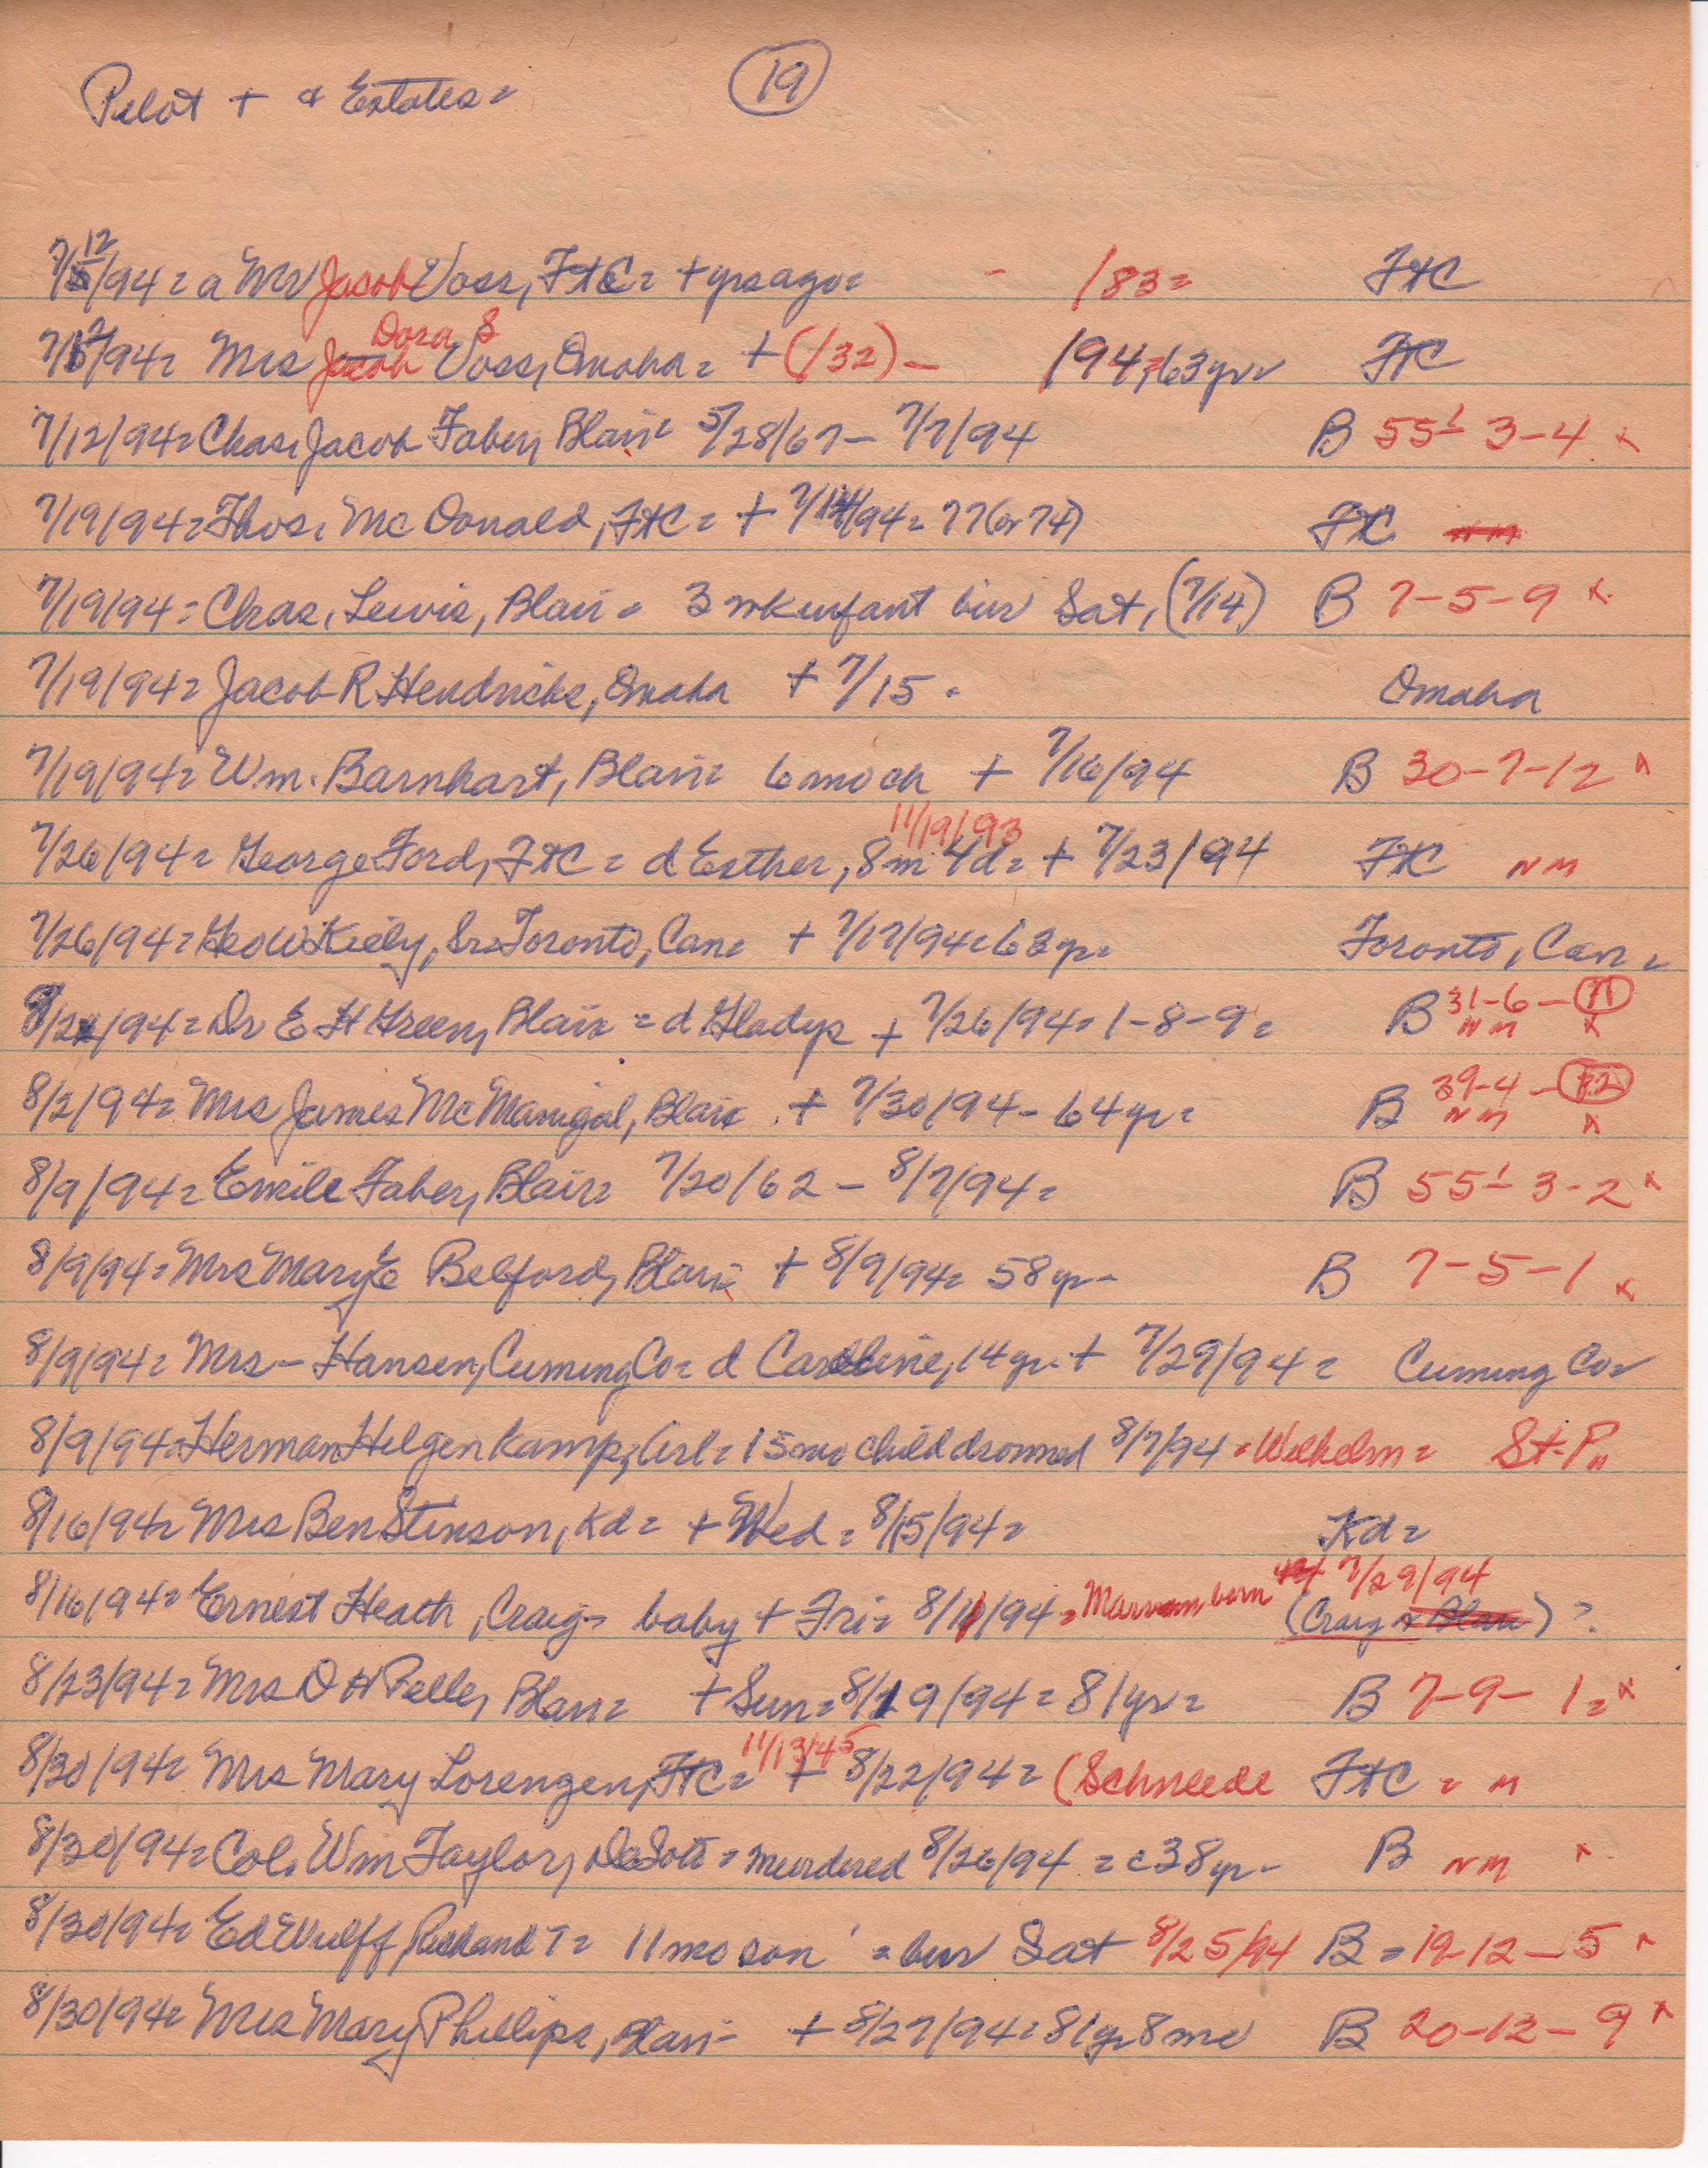 Pilot + & Estates =
19
7/12/94 = a Mr Jacob Voss, FtC = + yrs ago = - 183 = FtC
7/12/94 = Mrs Jacob Dora S Voss, Omaha = + (/32) - 194 = 63 yr = FtC
7/12/94 = Chas. Jacob Faber, Blair = 5/28/67 - 7/7/94 B 55½ 3-4 x
7/19/94 = Thos. McDonald, FtC = + 7/14/94 = 77 (or 74) FtC NM
7/19/94 = Chas. Lewis, Blair = 3 wk infant bur Sat, (7/14) B 7-5-9 x
7/19/94 = Jacob R Hendricks, Omaha + 7/15 = Omaha
7/19/94 = Wm. Barnhart, Blair = 6 mo ch + 7/16/94 B 30-7-12 x
7/26/94 = George Ford, FtC = d Esther, 8m 4d = 11/19/93 + 7/23/94 FtC NM
7/26/94 = Geo W Kiely, Sr = Toronto, Can = + 7/17/94 = 63 yr = Toronto, Can =
8/2/94 = Dr E H Green, Blair = d Gladys + 7/26/94 = 1-8-9 = B 31-6-11 NM x
8/2/94 = Mrs James McManigal, Blair + 7/30/94 - 64 yr = B 39-4-12 NM x
8/9/94 = Emile Faber, Blair = 7/20/62 - 8/7/94 = B 55½ 3-2 x
8/9/94 = Mrs Mary E Belford, Blair + 8/9/94 = 58 yr - B 7-5-1 x
8/9/94 = Mrs - Hansen, Cuming Co = d Caroline, 14 yr. + 7/29/94 = Cuming Co =
8/9/94 = Herman Helgenkamp, Arl = 15 mo child drowned 8/7/94 = Wilhelm = St. P.
8/16/94 = Mrs Ben Stinson, Kd = + Wed = 8/15/94 = Kd =
8/16/94 = Ernest Heath, Craig = baby + Fri = 8/11/94 = born 7/29/94 (Craig or Blair) ?
8/23/94 = Mrs D H Pelle, Blair = + Sun = 8/19/94 = 81 yr = B 7-9-1 = x
8/30/94 = Mrs Mary Lorenzen, FtC = 11/13/45 + 8/22/94 = (Schneede FtC = M
8/30/94 = Col. Wm Taylor, DeSoto = murdered 8/26/94 = c38 yr - B NM x
8/30/94 = Ed Wulff, Richard T = 11 mo son = bur Sat 8/25/94 B = 19-12-5 x
8/30/94 = Mrs Mary Phillips, Blair - + 8/27/94 = 81 yr 8 mo B 20-12-9 x